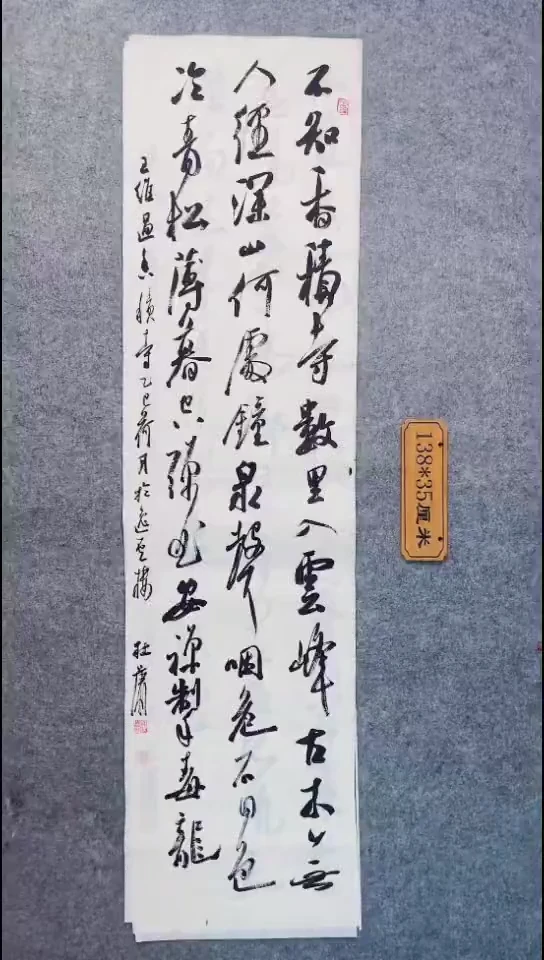 不知香積寺數里入雲峰古木無
人徑深山何處鐘泉聲咽危石日色
冷青松薄暮空潭曲安禪制毒龍
王維過香積寺乙巳荷月於逸雲樓 杜
138*35厘米